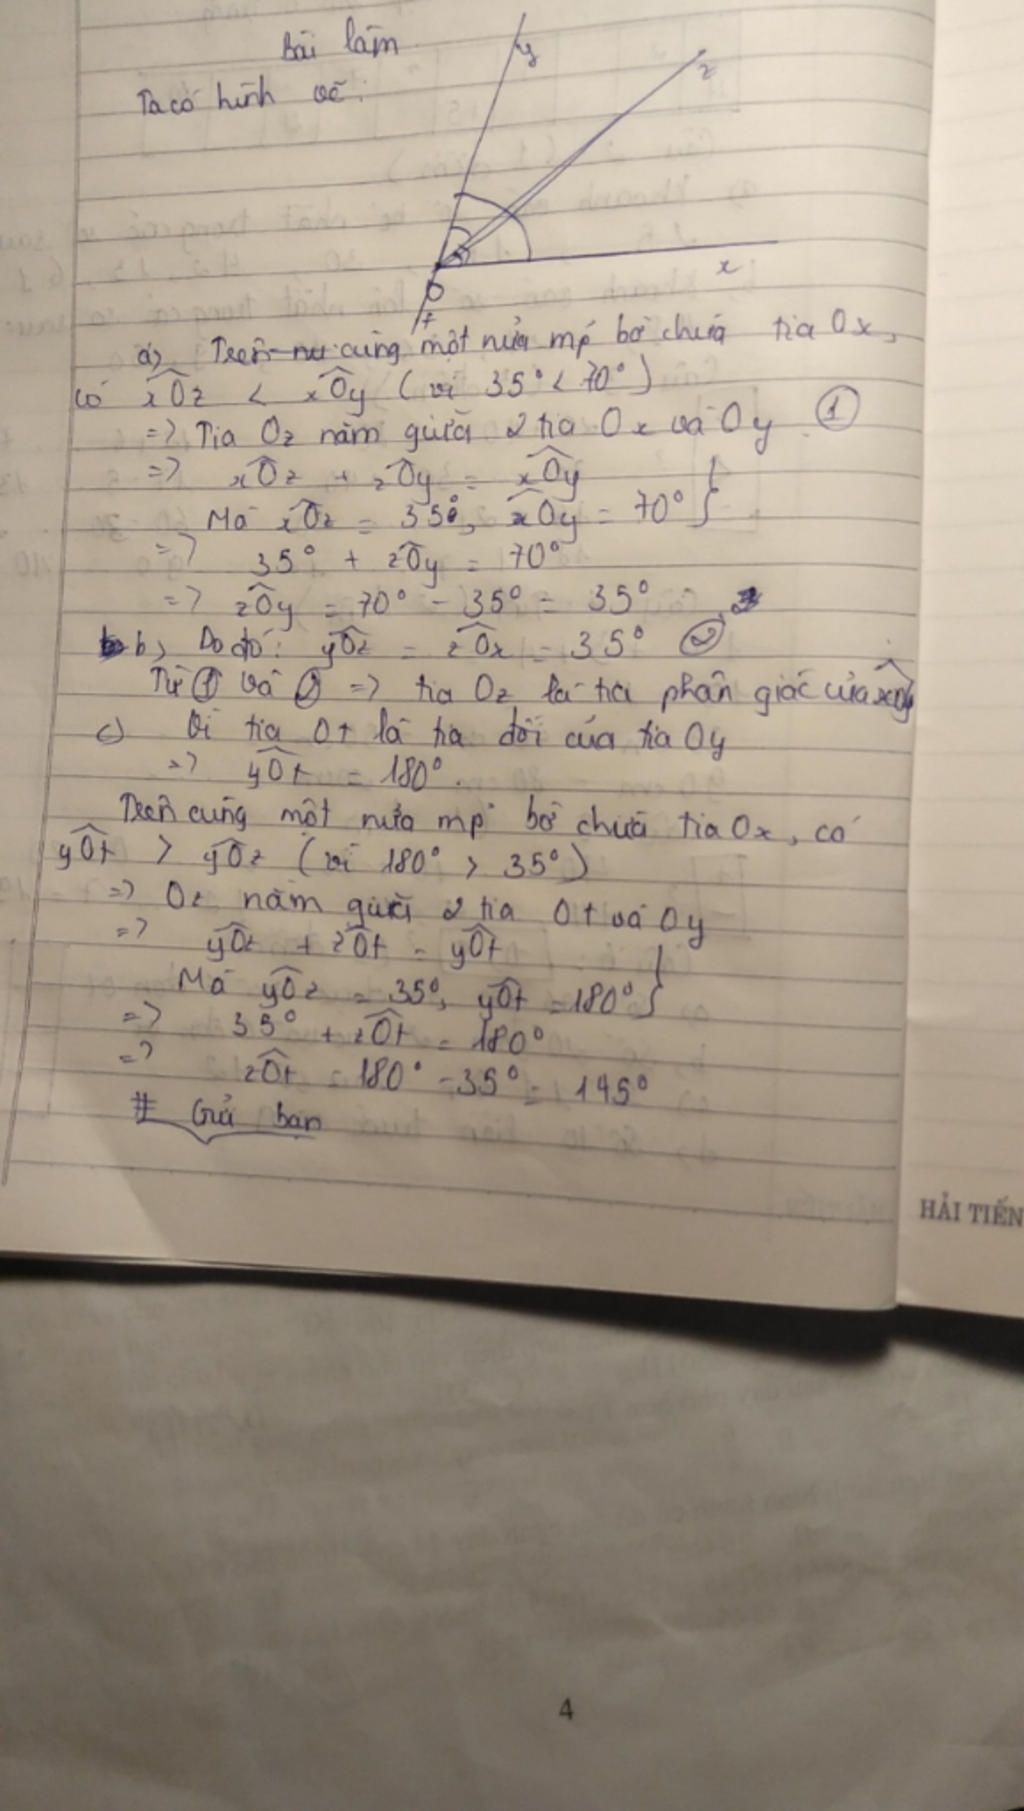 Bài làm
Ta có hình vẽ:
y
z
x
O
t
a) Trên nư cùng một nửa mp bờ chứa tia Ox,
có xOz < xOy (vì 35° < 70°)
=> Tia Oz nằm giữa 2 tia Ox và Oy (1)
=> xOz + zOy = xOy
Mà xOz = 35°, xOy = 70° }
=> 35° + zOy = 70°
=> zOy = 70° - 35° = 35°
b) Do đó: yOz = zOx = 35° (2)
Từ (1) và (2) => tia Oz là tia phân giác của xOy
c) Vì tia Ot là tia đối của tia Oy
=> yOt = 180°.
Trên cùng một nửa mp bờ chứa tia Ox, có
yOt > yOz (vì 180° > 35°)
=> Oz nằm giữa 2 tia Ot và Oy
=> yOz + zOt = yOt
Mà yOz = 35°, yOt = 180° }
=> 35° + zOt = 180°
=> zOt = 180° - 35° = 145°
# Gửi bạn
HẢI TIẾN
4